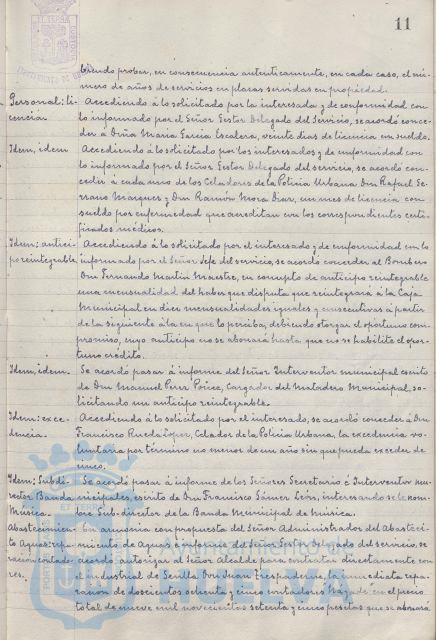 11
biendo probar, en consecuencia autenticamente, en cada caso, el nú-
mero de años de servicios en plazas servidas en propiedad.
Personal: li- Accediendo á lo solicitado por la interesada y de conformidad con
cencia. lo informado por el Señor Gestor Delegado del Servicio, se acordó conce-
der á Doña María García Escalera, veinte dias de licencia con sueldo.
Idem, idem Accediendo á lo solicitado por los interesados y de conformidad con
lo informado por el Señor Gestor Delegado del servicio, se acordó con-
ceder á cada uno de los Celadores de la Policia Urbana, Don Rafael Se-
rrano Marquez y Don Ramón Mora Diaz, un mes de licencia con
sueldo por enfermedad que acreditan con los correspondientes certi-
ficados médicos.
Idem; antici- Accediendo á lo solicitado por el interesado y de conformidad con lo
po reintegrable informado por el Señor Jefe del servicio, se acordó conceder al Bombero
Don Fernando Martin Maestre, en concepto de anticipo reintegrable
una mensualidad del haber que disfruta que reintegrará á la Caja
Municipal en diez mensualidades iguales y consecutivas á partir
de la siguiente á la en que lo perciba, debiendo otorgar el oportuno com-
promiso, cuyo anticipo no se abonará hasta que no se habilite el opor-
tuno crédito.
Idem, idem. Se acordó pasar á informe del Señor Interventor municipal escrito
de Don Manuel Perez Ponce, Cargador del Matadero Municipal, so-
licitando un anticipo reintegrable.
Idem: exce- Accediendo á lo solicitado por el interesado, se acordó conceder á Don
dencia. Francisco Rueda Lopez, Celador de la Policia Urbana, la excedencia vo-
luntaria por termino no menos de un año sin que pueda exceder de
cinco.
Idem; Subdi- Se acordó pasar á informe de los Señores Secretario é Interventor mu-
rector Banda nicipales, escrito de Don Francisco Gómez León, interesando se le nom-
Música. bre Sub-director de la Banda Municipal de Música.
Abastecimien- En armonia con propuesta del Señor Administrador del Abasteci-
to Aguas: repa- miento de Aguas é informe del Señor Gestor Delegado del servicio, se
ración contado- acordó autorizar al Señor Alcalde para contratar directamente con
res. el industrial de Sevilla Don Juan, la inmediata repa-
ración de doscientos setenta y cinco contadores en el precio
total de nueve mil novecientos setenta y cinco pesetas que se abonará
Ayuntamiento de
HUELVA